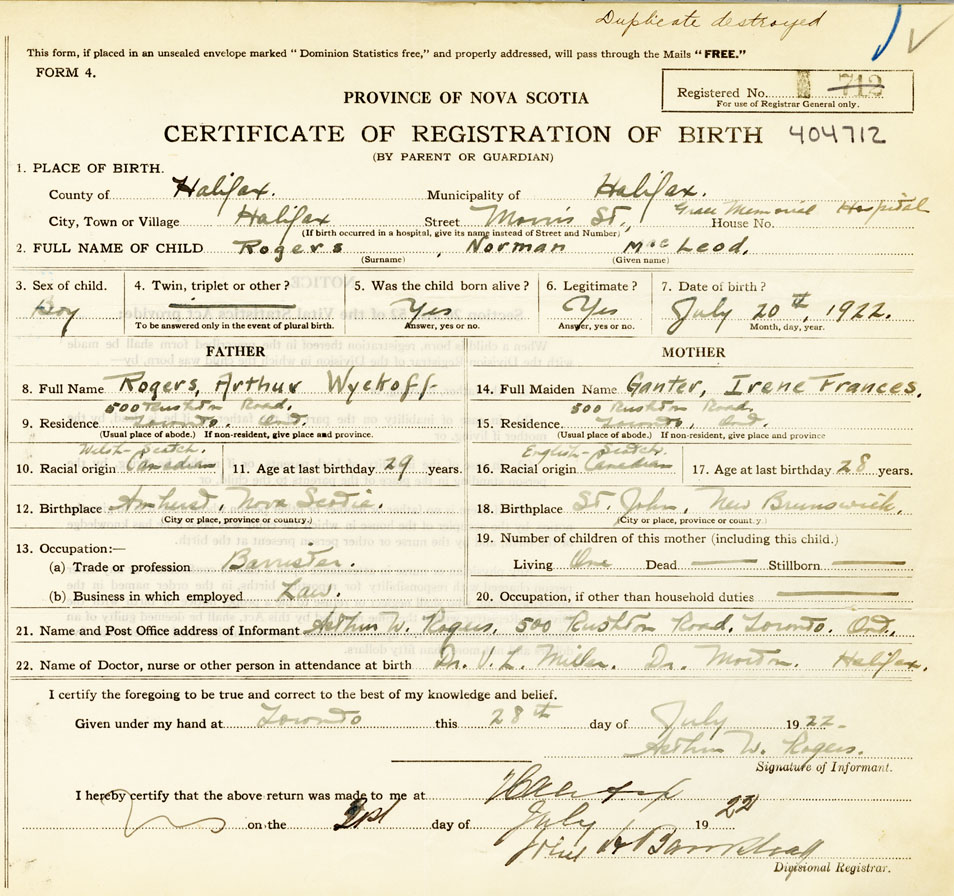 Duplicate destroyed
This form, if placed in an unsealed envelope marked "Dominion Statistics free," and properly addressed, will pass through the Mails "FREE."
FORM 4.
Registered No. 712
For use of Registrar General only.
PROVINCE OF NOVA SCOTIA
CERTIFICATE OF REGISTRATION OF BIRTH 404712
(BY PARENT OR GUARDIAN)
1. PLACE OF BIRTH.
County of Halifax. Municipality of Halifax.
City, Town or Village Halifax Street Morris St., House No. Grace Memorial Hospital
(If birth occurred in a hospital, give its name instead of Street and Number)
2. FULL NAME OF CHILD Rogers, Norman MacLeod.
(Surname) (Given name)
3. Sex of child. 4. Twin, triplet or other? 5. Was the child born alive? 6. Legitimate? 7. Date of birth?
Boy Yes Yes July 20th, 1922.
To be answered only in the event of plural birth. Answer, yes or no. Answer, yes or no. Month, day, year.
FATHER MOTHER
8. Full Name Rogers, Arthur Wyckoff 14. Full Maiden Name Ganter, Irene Frances.
500 Rushton Road. 500 Rushton Road.
9. Residence Toronto. Ont. 15. Residence Toronto, Ont.
(Usual place of abode.) If non-resident, give place and province. (Usual place of abode.) If non-resident, give place and province
Welsh-Scotch. English-Scotch.
10. Racial origin Canadian 11. Age at last birthday 29 years. 16. Racial origin Canadian 17. Age at last birthday 28 years.
12. Birthplace Amherst, Nova Scotia. 18. Birthplace St. John, New Brunswick.
(City or place, province or country.) (City or place, province or country.)
13. Occupation:— 19. Number of children of this mother (including this child.)
(a) Trade or profession Barrister. Living One Dead Stillborn
(b) Business in which employed Law. 20. Occupation, if other than household duties
21. Name and Post Office address of Informant Arthur W. Rogers, 500 Rushton Road, Toronto. Ont.
22. Name of Doctor, nurse or other person in attendance at birth Dr. V. L. Miller. Dr. Morton. Halifax.
I certify the foregoing to be true and correct to the best of my knowledge and belief.
Given under my hand at Toronto this 28th day of July 1922.
Arthur W. Rogers.
Signature of Informant.
I hereby certify that the above return was made to me at Halifax
on the day of July 1922
Divisional Registrar.